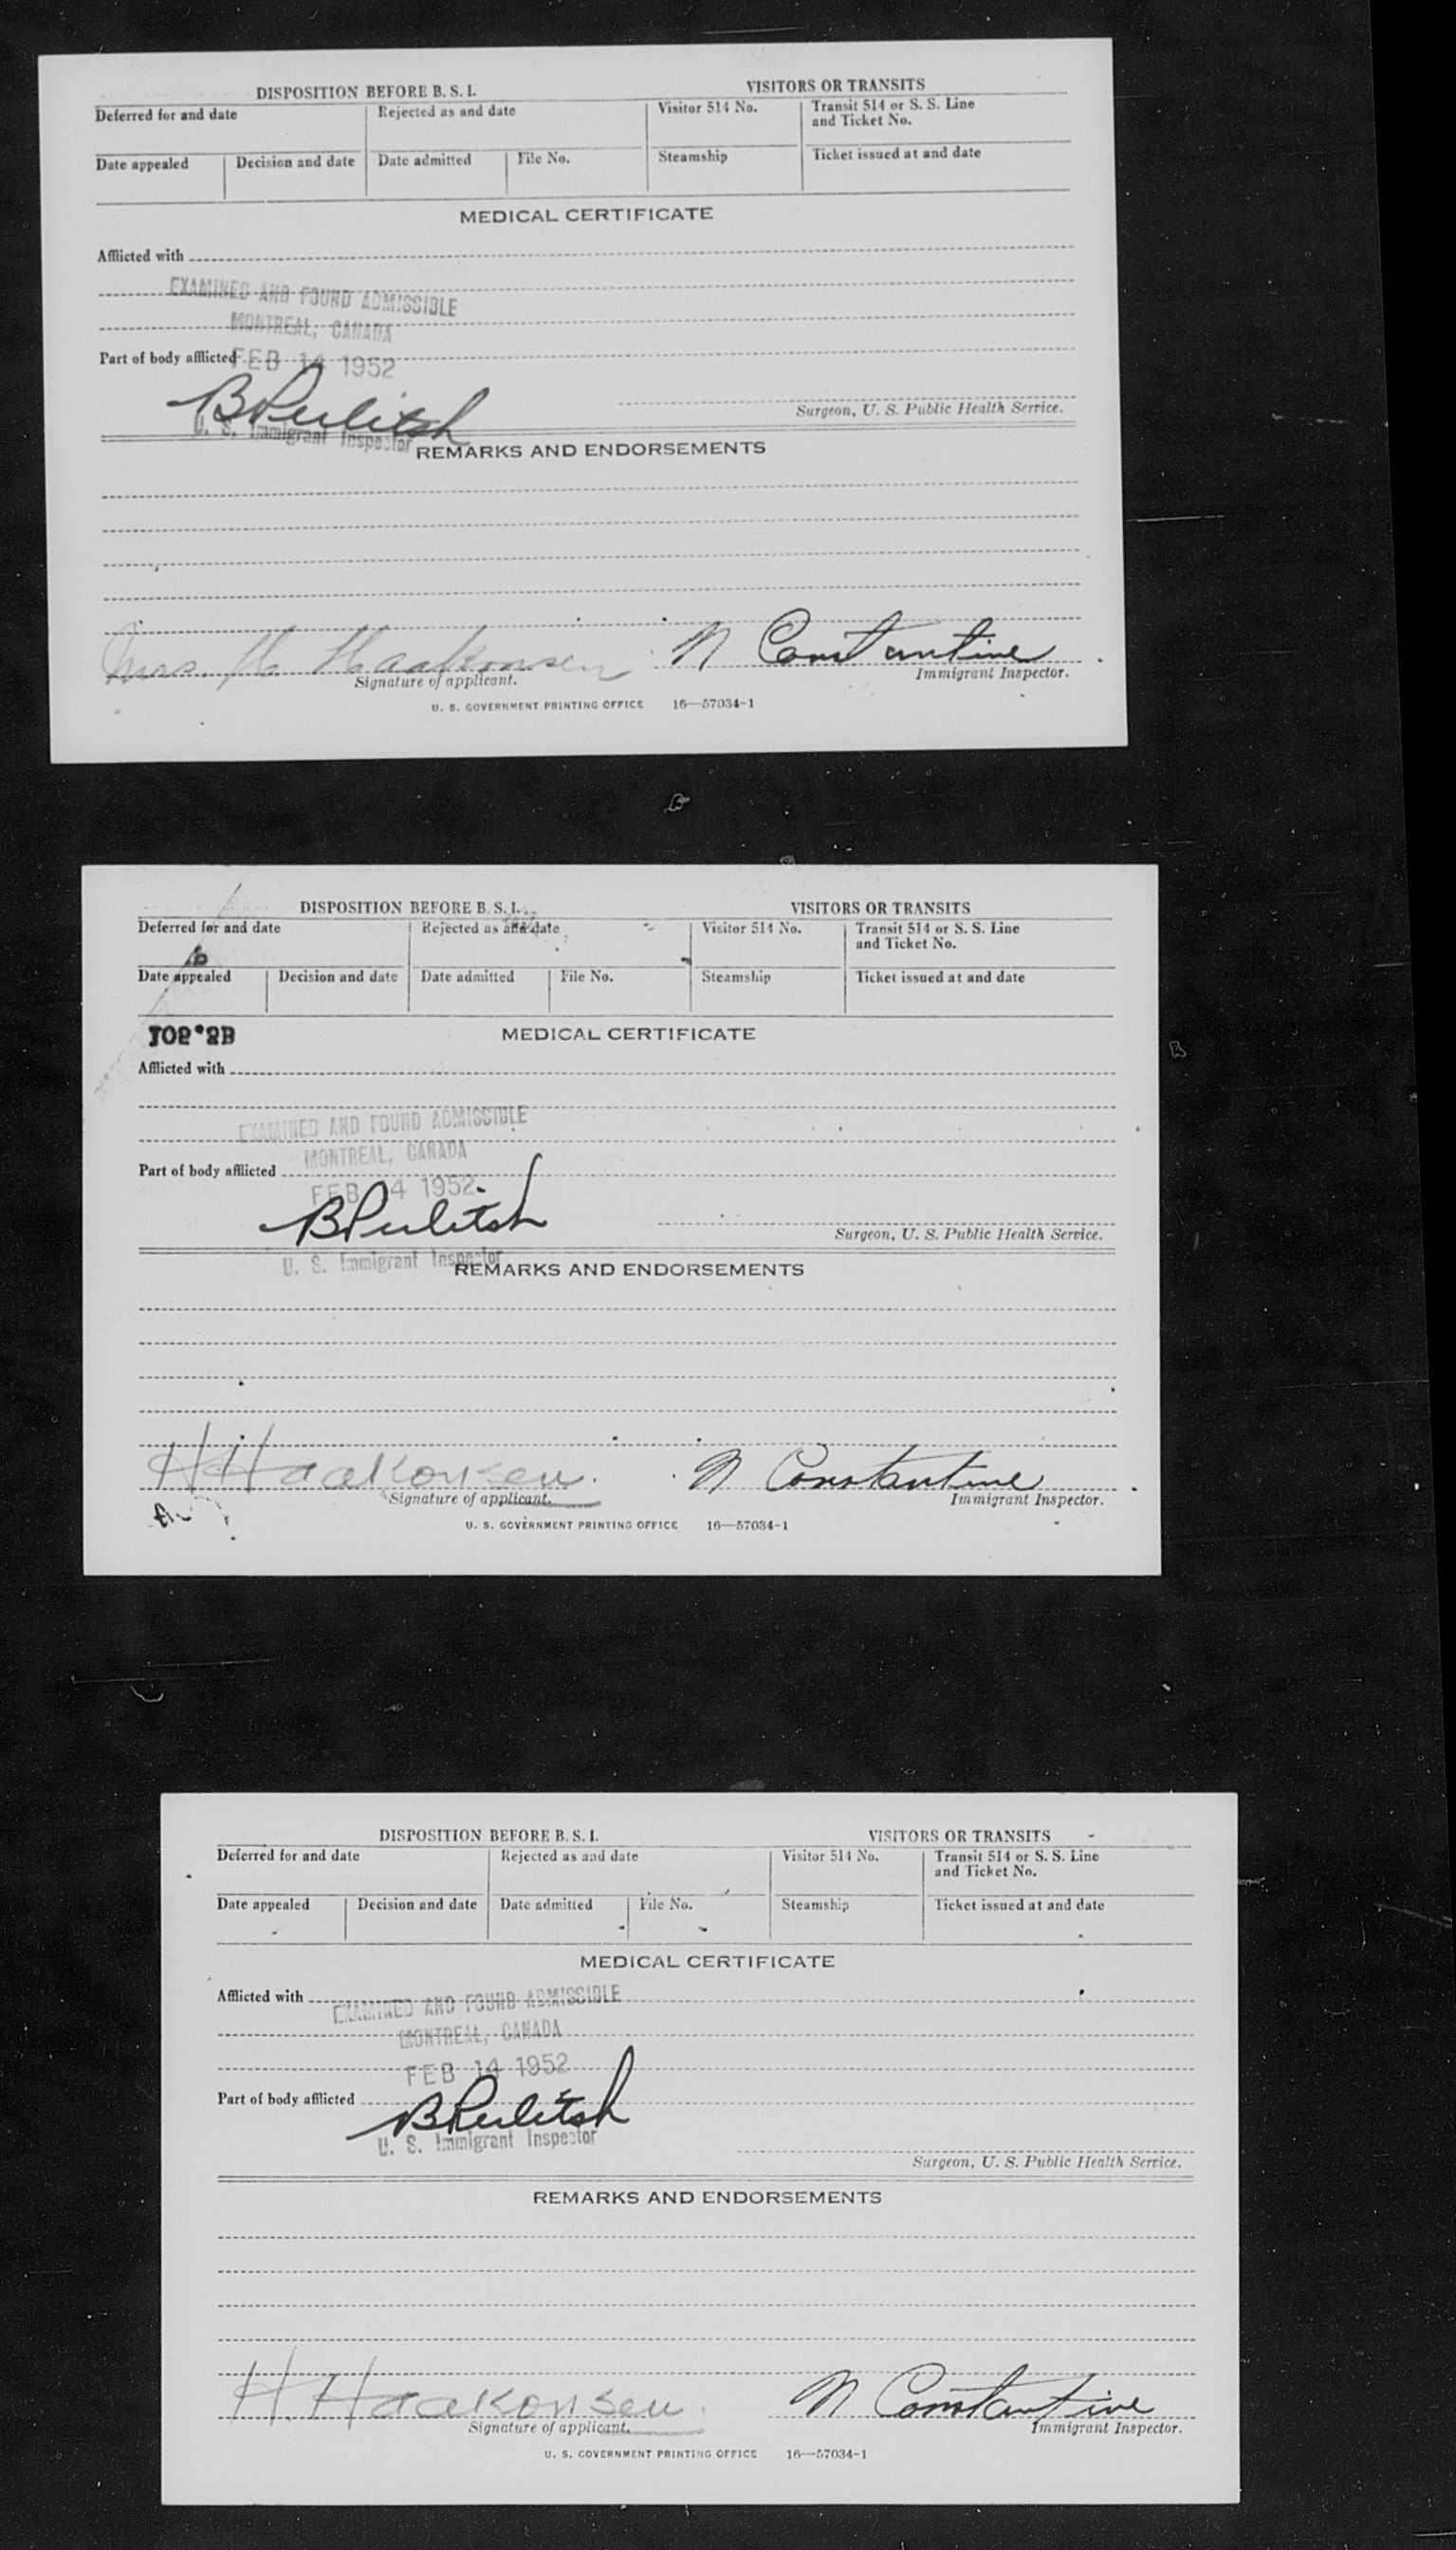 DISPOSITION BEFORE B. S. I. VISITORS OR TRANSITS
Deferred for and date Rejected as and date Visitor 514 No. Transit 514 or S. S. Line and Ticket No.
Date appealed Decision and date Date admitted File No. Steamship Ticket issued at and date
MEDICAL CERTIFICATE
Afflicted with
EXAMINED AND FOUND ADMISSIBLE
MONTREAL, CANADA
Part of body afflicted FEB 14 1952
Surgeon, U. S. Public Health Service.
U. S. Immigrant Inspector
REMARKS AND ENDORSEMENTS
Mrs. H. Haakonsen N Constantine
Signature of applicant. Immigrant Inspector.
U. S. GOVERNMENT PRINTING OFFICE 16—57034-1
DISPOSITION BEFORE B. S. I. VISITORS OR TRANSITS
Deferred for and date Rejected as and date Visitor 514 No. Transit 514 or S. S. Line and Ticket No.
Date appealed Decision and date Date admitted File No. Steamship Ticket issued at and date
MEDICAL CERTIFICATE
Afflicted with
EXAMINED AND FOUND ADMISSIBLE
MONTREAL, CANADA
Part of body afflicted
FEB 14 1952
Surgeon, U. S. Public Health Service.
U. S. Immigrant Inspector
REMARKS AND ENDORSEMENTS
H Haakonsen. N Constantine
Signature of applicant. Immigrant Inspector.
U. S. GOVERNMENT PRINTING OFFICE 16—57034-1
DISPOSITION BEFORE B. S. I. VISITORS OR TRANSITS
Deferred for and date Rejected as and date Visitor 514 No. Transit 514 or S. S. Line and Ticket No.
Date appealed Decision and date Date admitted File No. Steamship Ticket issued at and date
MEDICAL CERTIFICATE
Afflicted with EXAMINED AND FOUND ADMISSIBLE
MONTREAL, CANADA
FEB 14 1952
Part of body afflicted
U. S. Immigrant Inspector
Surgeon, U. S. Public Health Service.
REMARKS AND ENDORSEMENTS
H. Haakonsen. N Constantine
Signature of applicant. Immigrant Inspector.
U. S. GOVERNMENT PRINTING OFFICE 16—57034-1